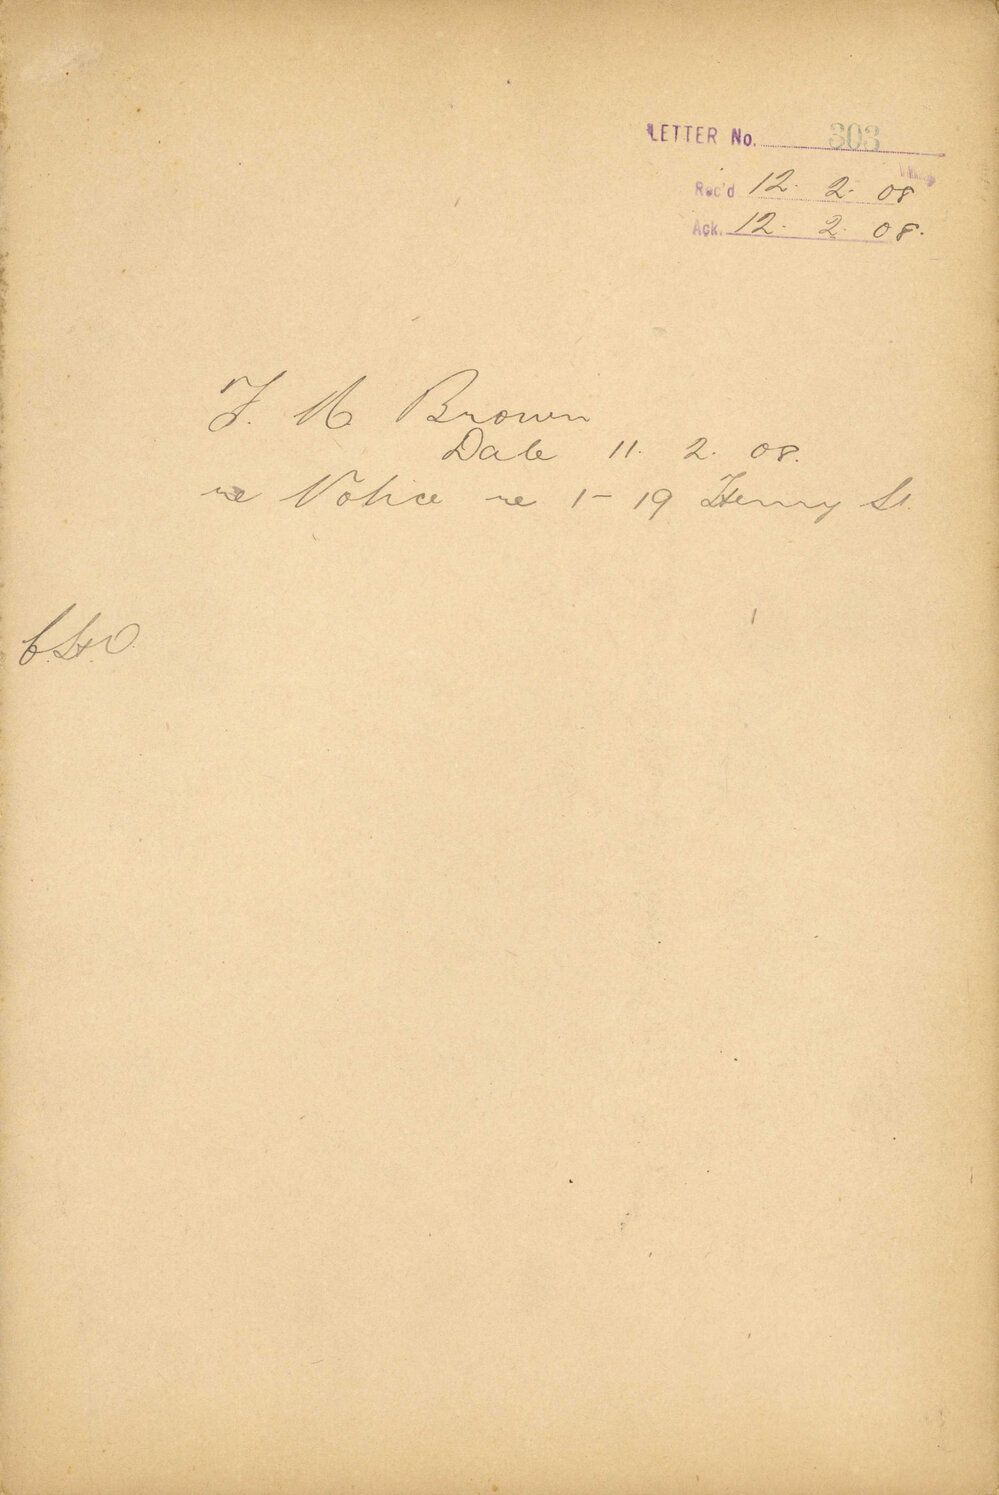 LETTER No. 303
Rec'd 12. 2. 08
Ack. 12. 2. 08.
Brown
Date 11. 2. 08.
re Notice re 1-19 Henry St.